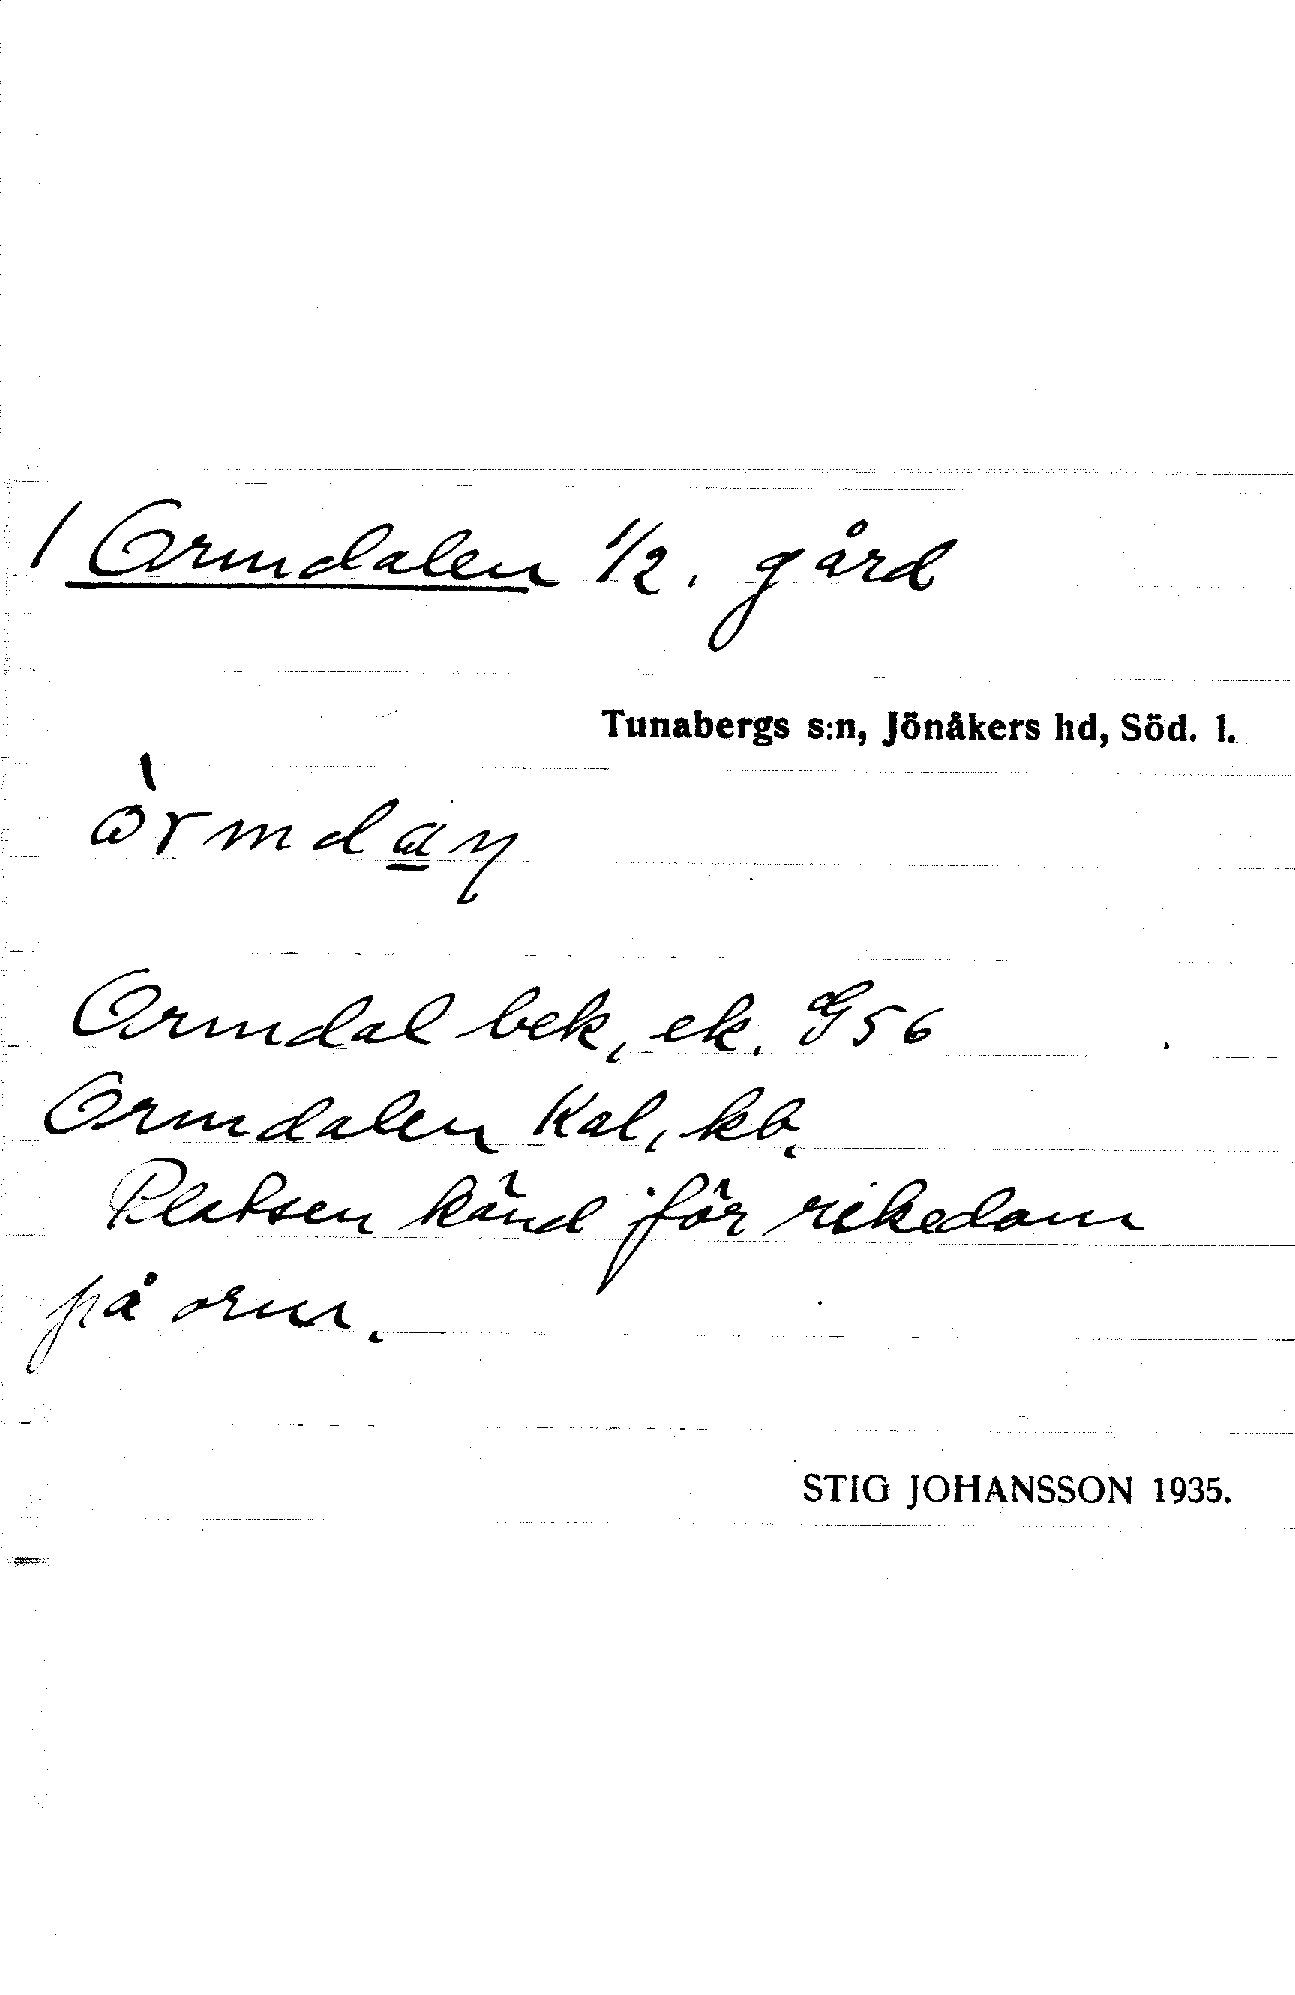 / Ormdalen 1/2. gård
Tunabergs s:n, Jönåkers hd, Söd. l.
Ormdal bek, ek. G56
Ormdalen Kal, kb.
Platsen känd för rikedom
på orm.
STIG JOHANSSON 1935.